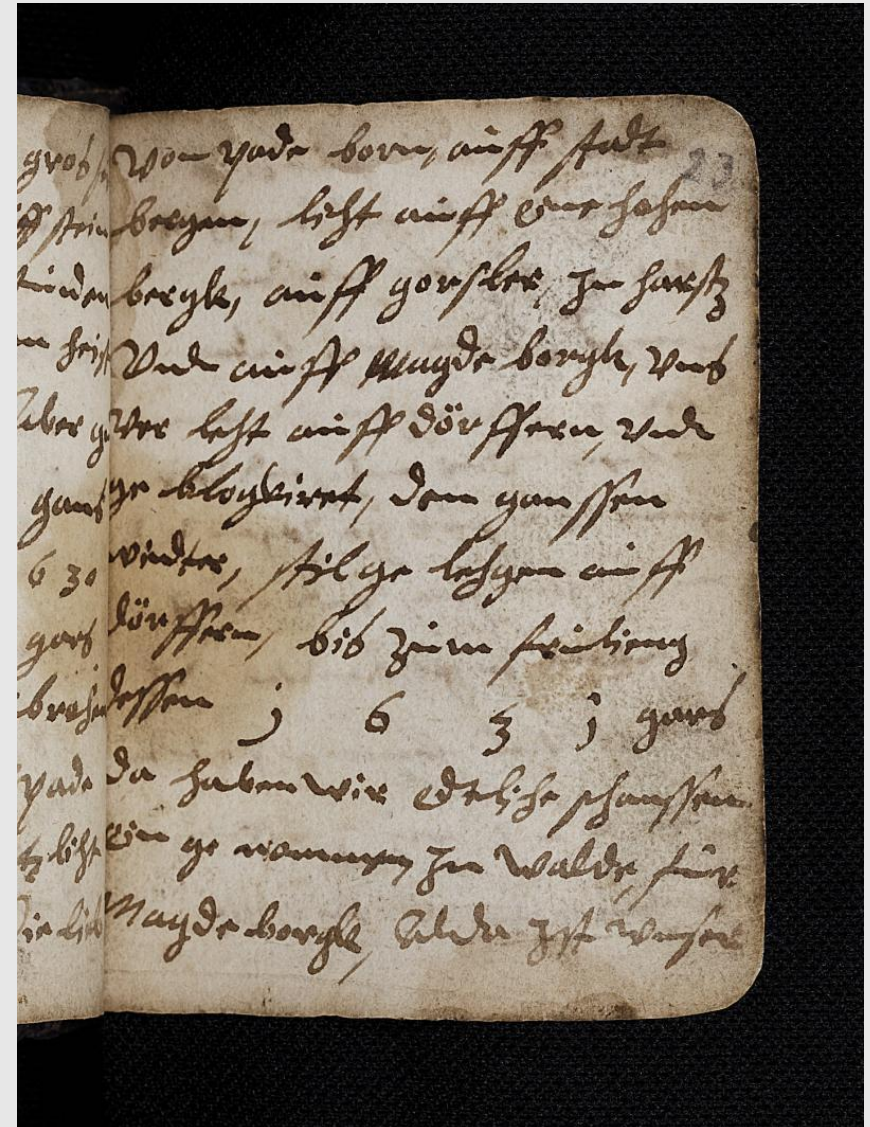 gros
gans
630
gars
pade
23
Von pade born, auff stadt
bergen, licht auff eine hohen
bergk, auff gorsler, Im harstz
Vndt auff Magde borgk, vns
Ver lecht auff dörffern, vndt
ge blogkiret, den ganssen
windter, stil ge lehgen auff
dörffern, bis zum frulieng
dessen 1 6 3 1 gars
da haben wir edtliche schanssen
ein ge nommen Im walde, für
Magde borgk, Alda Ist vnser